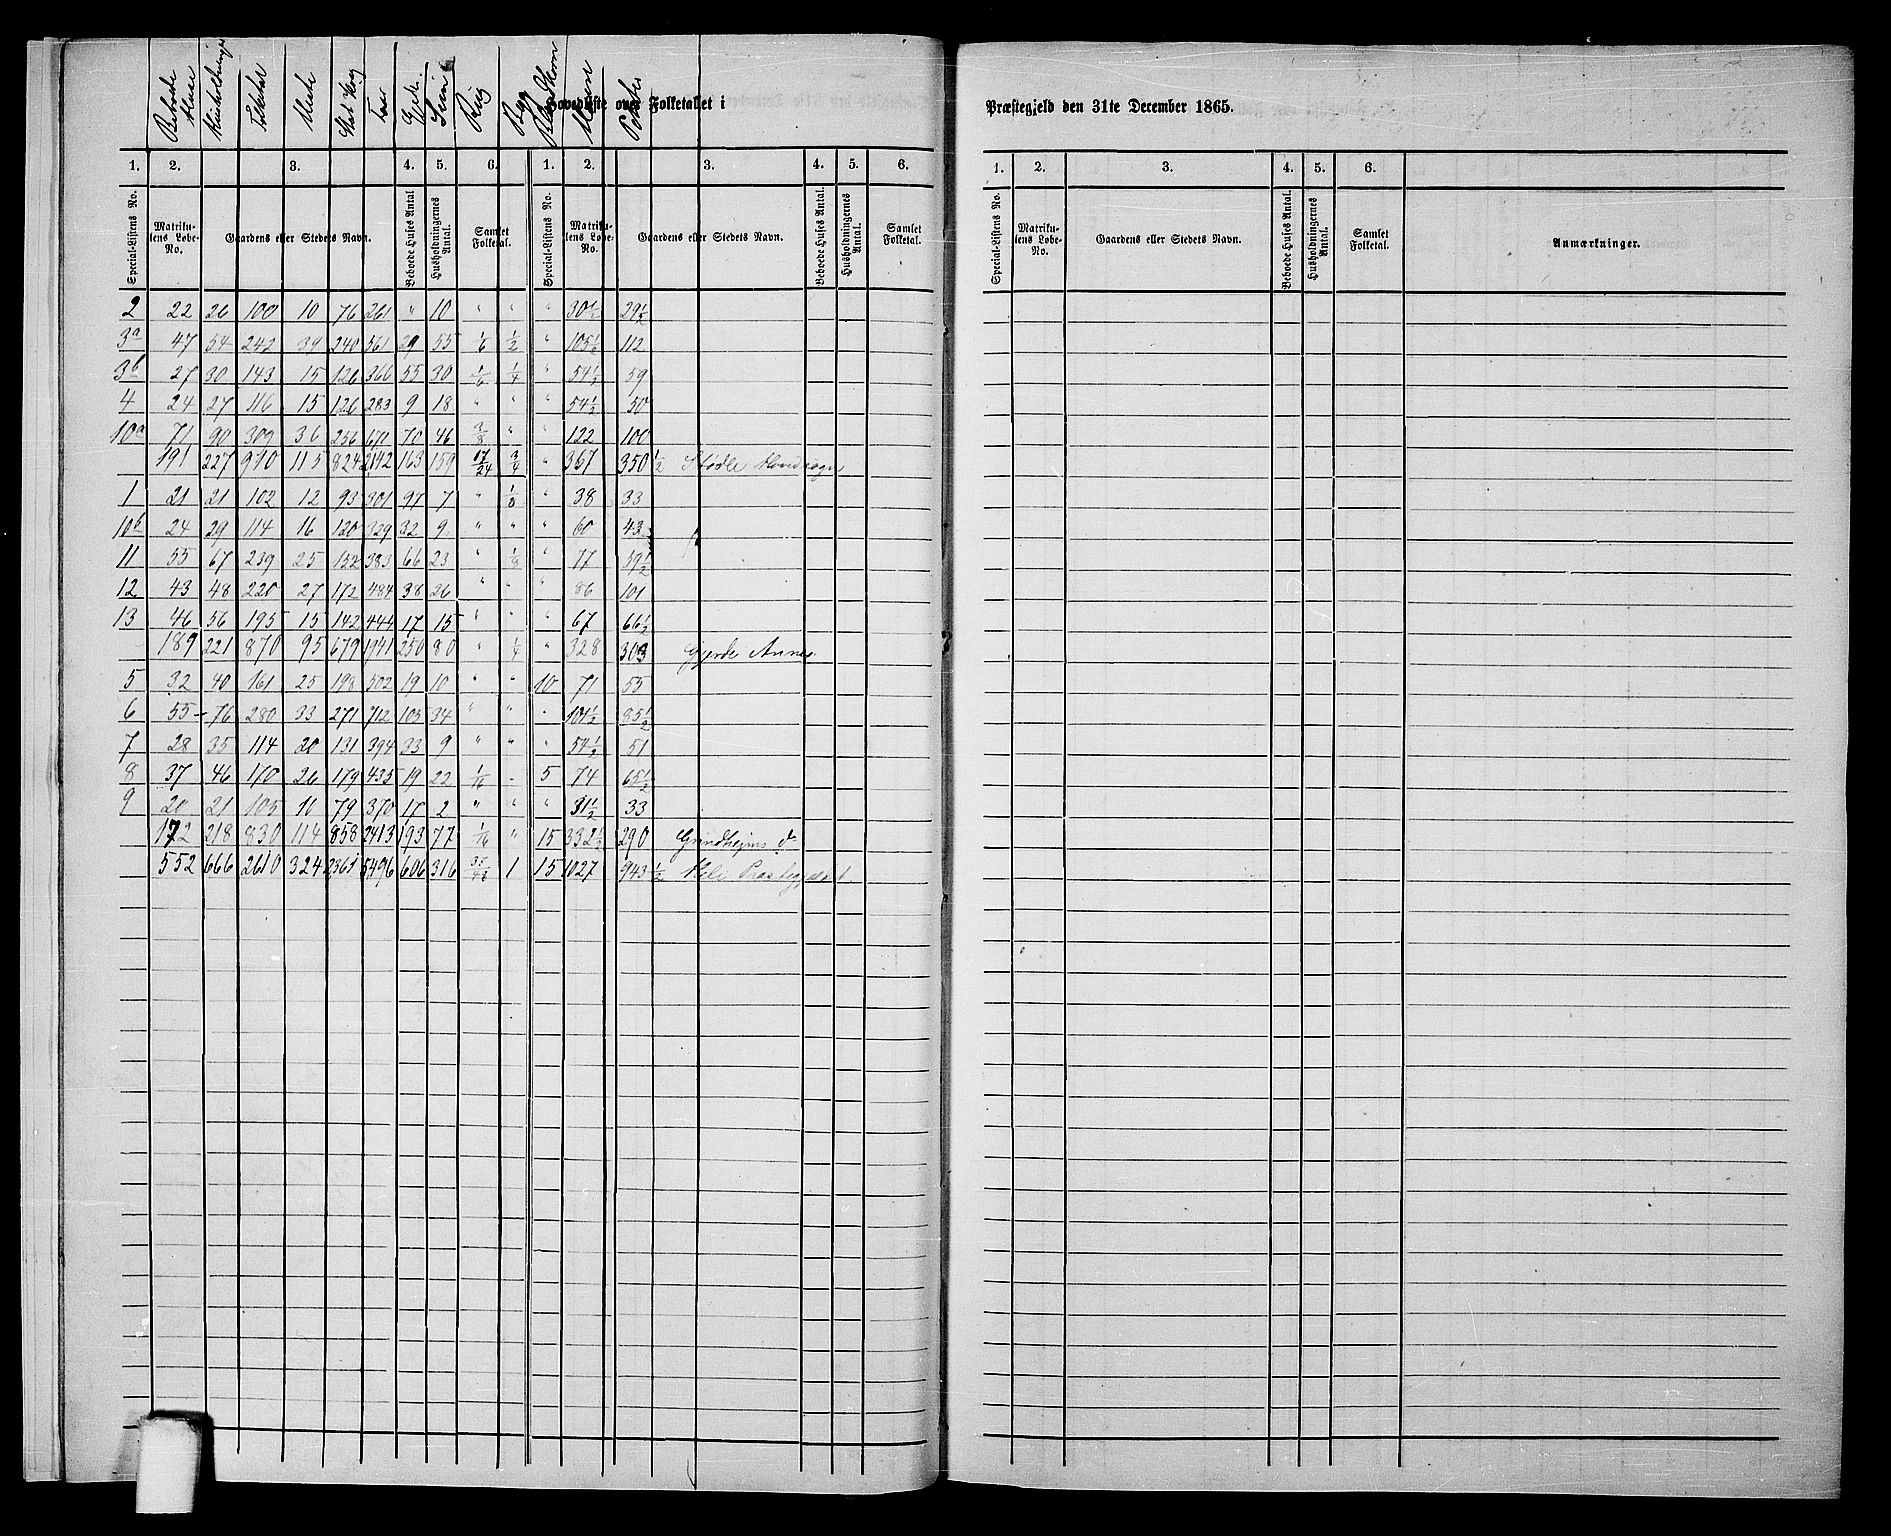 Beboede Huse | Husholdninger | Folketal | Heste | Stort Kvæg | Faar | Gjeder | Sviin | Rug | Byg | Blandkorn | Havre | Poteter
Hovedliste over Folketallet i
Præstegjeld den 31te December 1865.
1. 2. 3. 4. 5. 6. 1. 2. 3. 4. 5. 6.
1. 2. 3. 4. 5. 6.
Special-Listens No. | Matrikulens Løbe-No. | Gaardens eller Stedets Navn. | Beboede Huses Antal | Husholdningernes Antal. | Samlet Folketal. | Special-Listens No. | Matrikulens Løbe-No. | Gaardens eller Stedets Navn. | Beboede Huses Antal. | Husholdningernes Antal. | Samlet Folketal.
Special-Listens No. | Matrikulens Løbe-No. | Gaardens eller Stedets Navn. | Beboede Huses Antal. | Husholdningernes Antal. | Samlet Folketal. | Anmærkninger.
2 22 26 100 10 76 261 " 10 " " " 30½ 29½
3a 47 54 242 39 240 561 29 55 1/6 1/2 " 105½ 112
3b 27 30 143 15 126 366 55 30 1/6 1/4 " 54½ 59
4 24 27 116 15 126 283 9 18 " " " 54½ 50
10a 71 90 309 36 256 671 70 46 3/8 " " 122 100
191 227 910 115 824 2142 163 159 17/24 3/4 " 367 350½ Stødle Hovedsogn
1 21 21 102 12 93 301 97 7 " 1/8 " 38 33
10b 24 29 114 16 120 329 32 9 " " " 60 43
11 55 67 239 25 152 383 66 23 " 1/8 " 77 59½
12 43 48 220 27 172 484 38 26 " " " 86 101
13 46 56 195 15 142 444 17 15 " " " 67 66½
189 221 870 95 679 1941 250 80 " 1/4 " 328 303 Gjerde Annex
5 32 40 161 25 198 502 19 10 " " 10 71 55
6 55 76 280 33 271 712 105 34 " " " 101½ 85½
7 28 35 114 20 131 394 33 9 " " " 54½ 51
8 37 46 170 26 179 435 19 22 1/16 - 5 74 65½
9 20 21 105 10 79 370 17 2 " " " 31½ 33
172 218 830 114 858 2413 193 77 1/16 " 15 332½ 290 Grindheims do
552 666 2610 324 2361 5496 606 316 37/48 1 15 1027 943½ Hele Præstegjældet